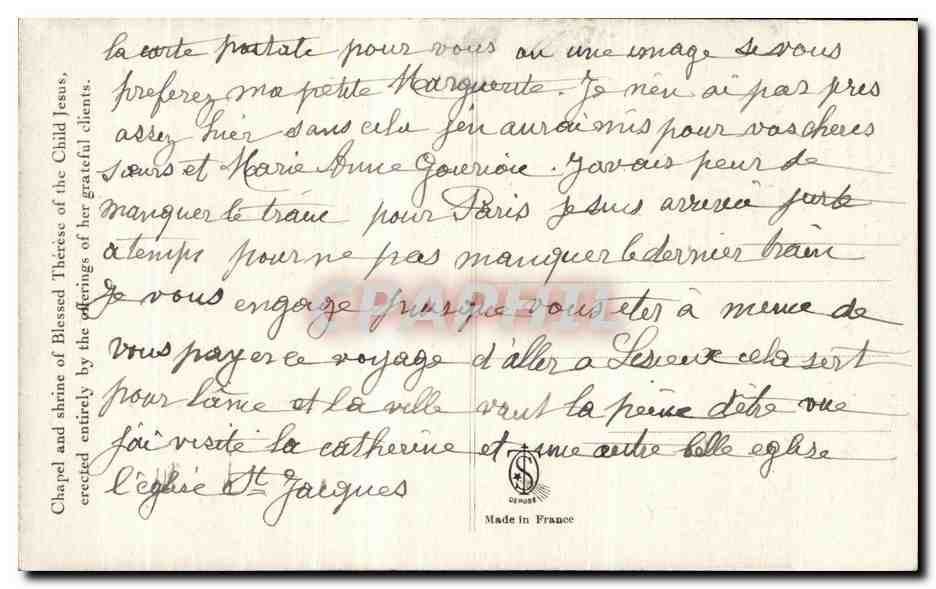 la carte postale pour vous ou une image si vous
preferez ma petite Marguerite. Je n'en ai pas pris
assez hier sans cela j'en aurai mis pour vos cheres
sœurs et Marie Anne Gouriou. J'avais peur de
manquer le train pour Paris je suis arrivée juste
a temps pour ne pas manquer le dernier train
Je vous engage puisque vous eter à meme de
vous payer ce voyage d'aller a Lisieux cela sert
pour l'âme et la ville vaut la peine d'être vue
j'ai visité la catherine et une autre belle eglise
l'église St Jacques
Chapel and shrine of Blessed Thérèse of the Child Jesus,
erected entirely by the offerings of her grateful clients.
CPAPHIL
DEPOSE
Made in France